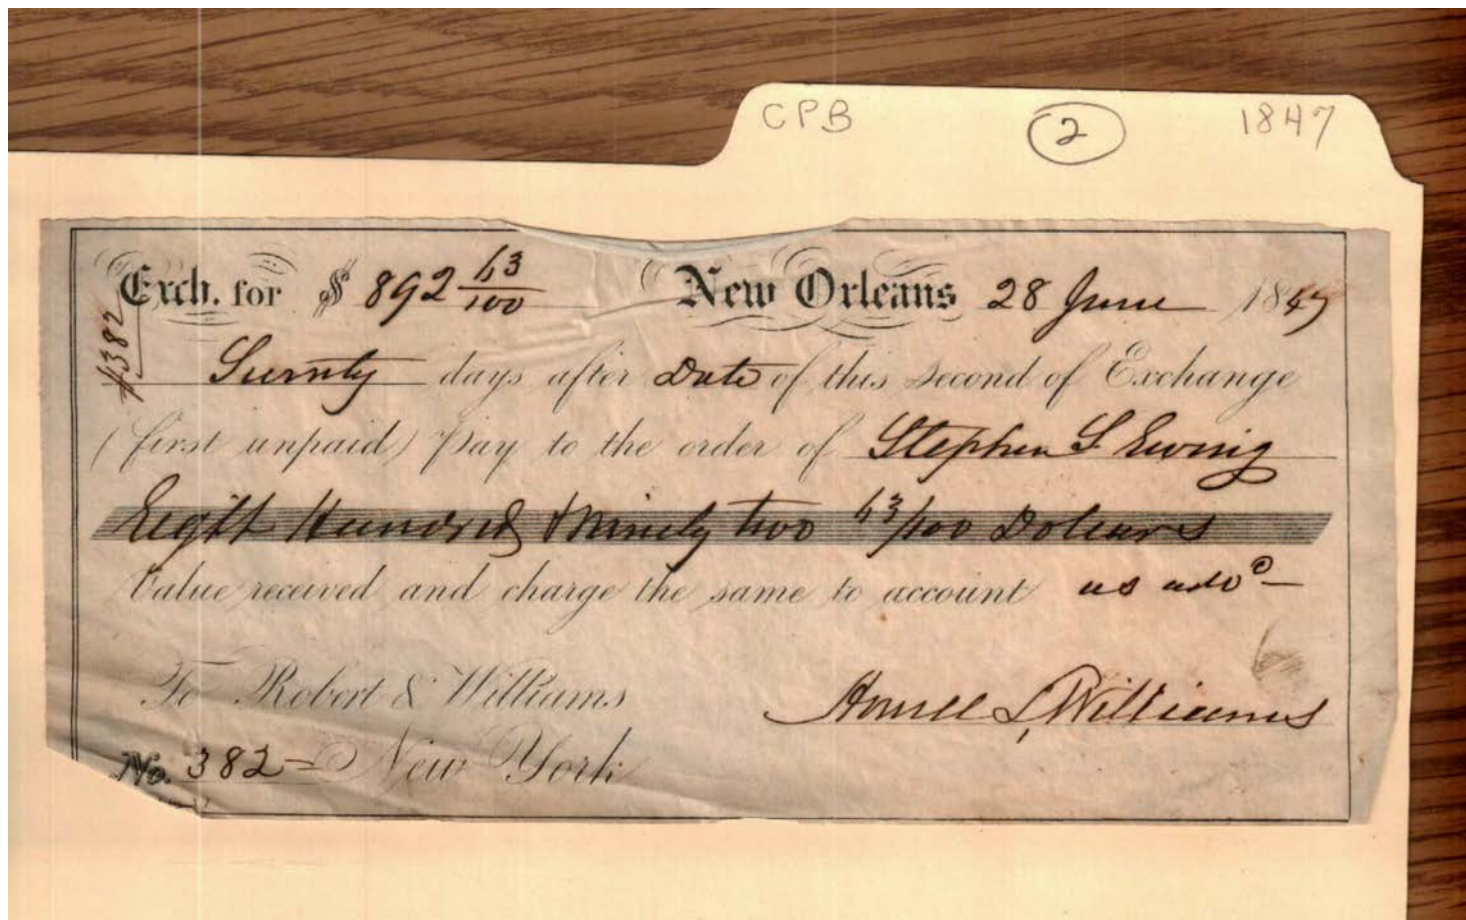 CPB 2 1847
Exch. for $ 892 63/100 New Orleans 28 June 1847
#382
Seventy days after Date of this second of Exchange
(first unpaid) Pay to the order of Stephen S Ewing
Eight Hundred & Ninety two 63/100 Dollars
Value received and charge the same to account as adv^e
To Robert & Williams
Howell L Williams
No. 382 New York